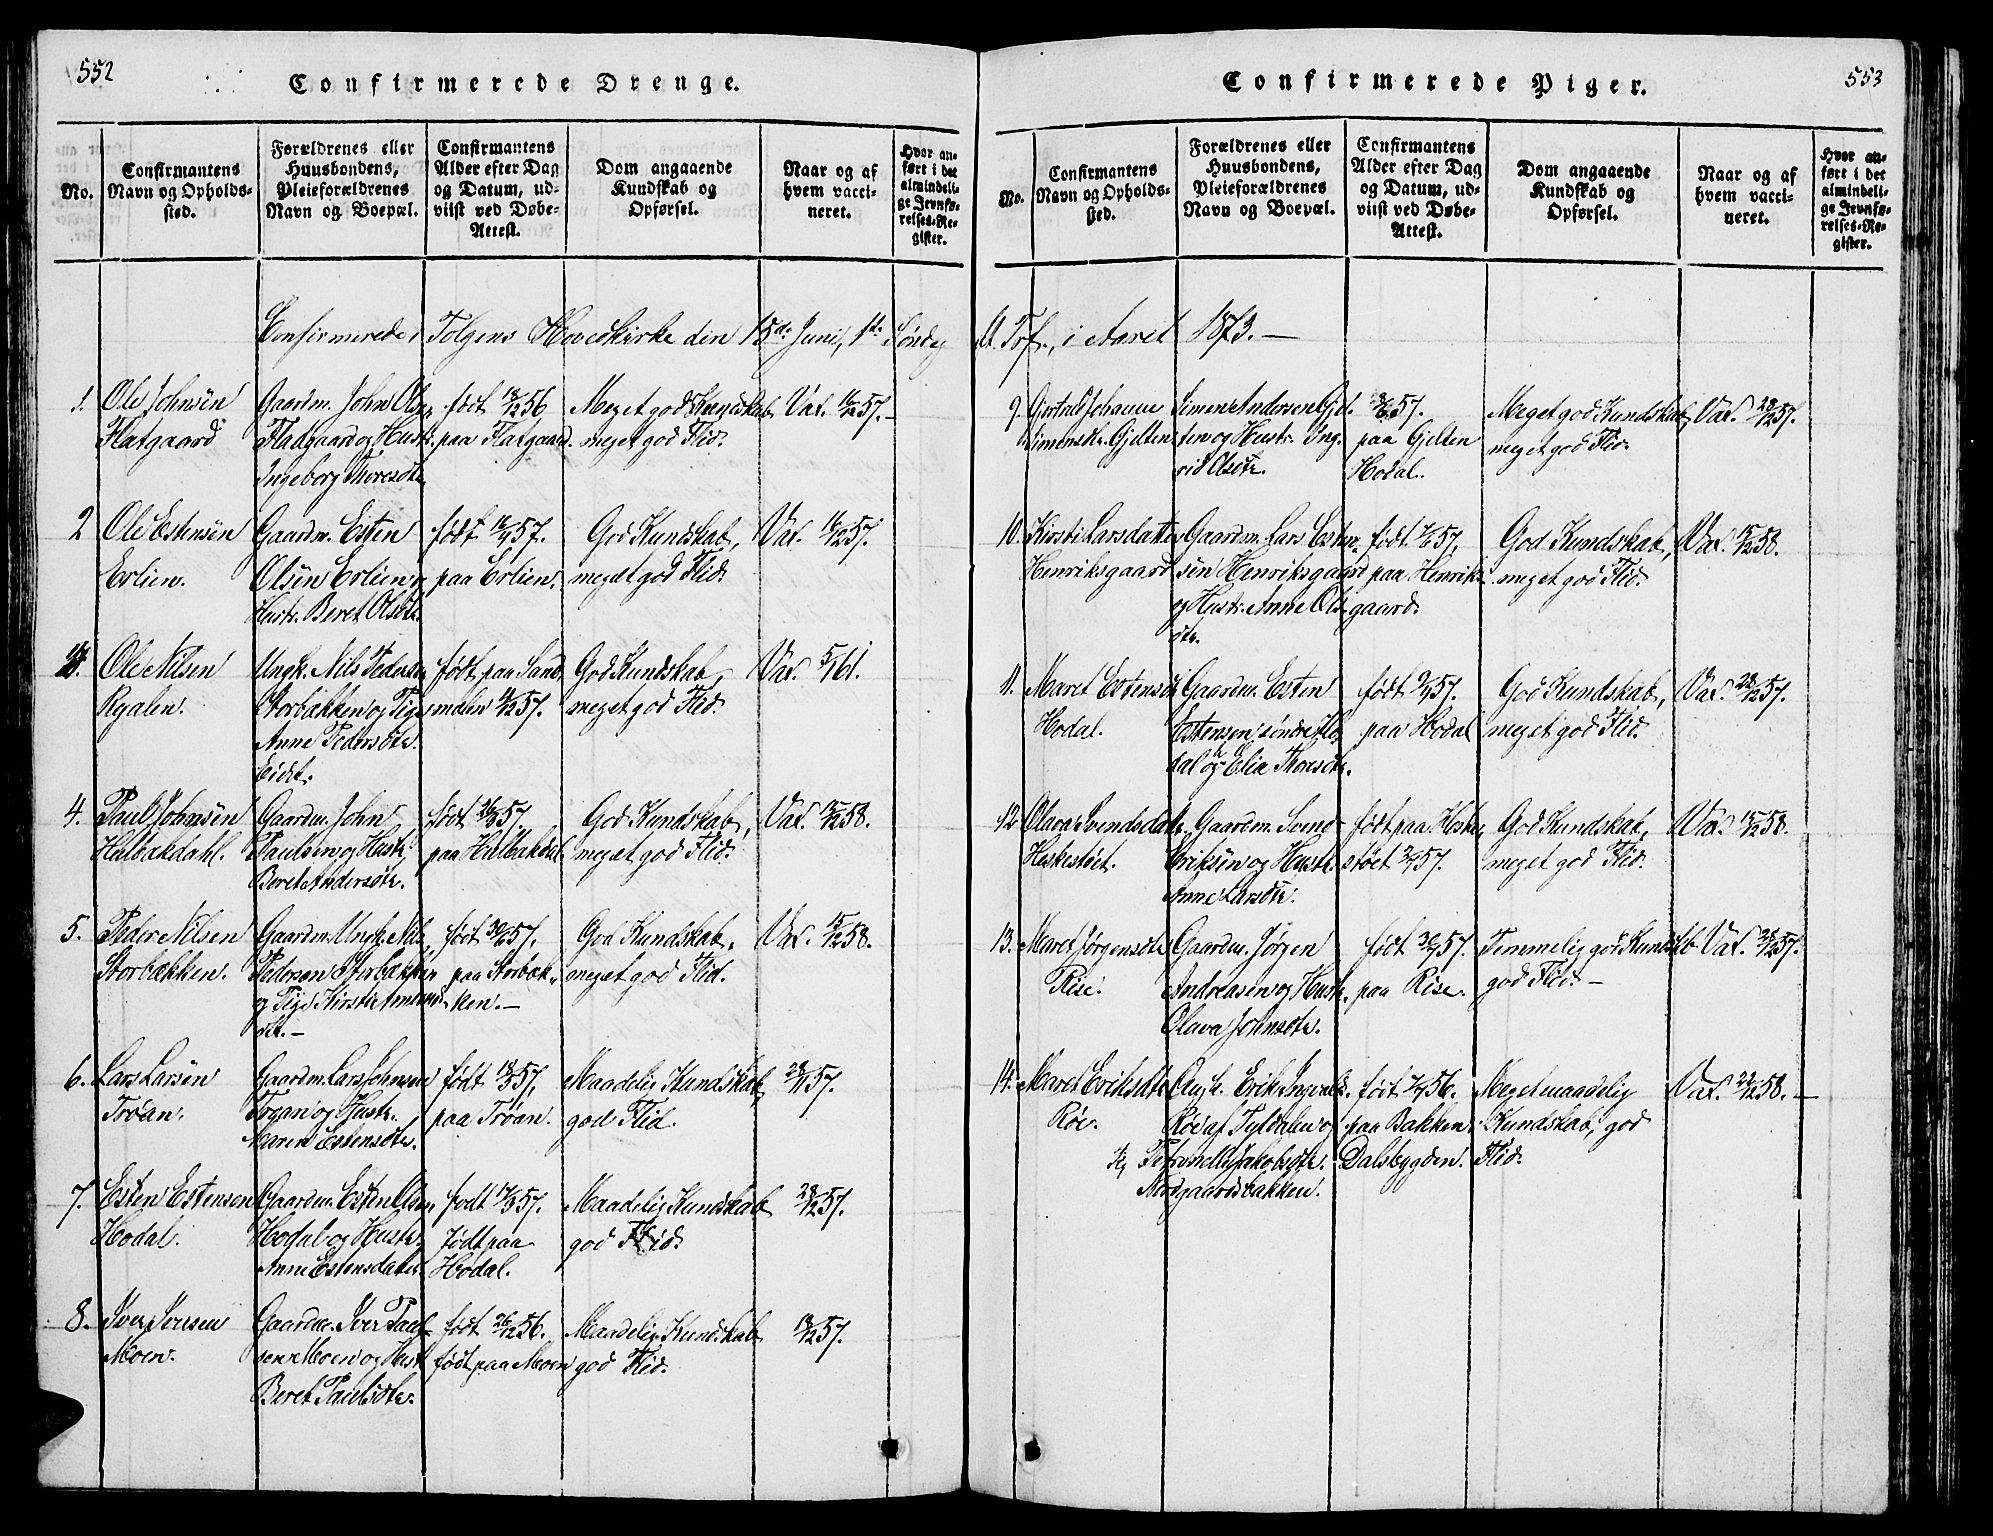 552
Confirmerede Drenge.
No.
Confirmantens
Navn og Opholds-
sted.
Forældrenes eller
Huusbondens,
Pleieforældrenes
Navn og Boepæl.
Confirmantens
Alder efter Dag
og Datum, ud-
viist ved Døbe-
Attest.
Dom angaaende
Kundskab og
Opførsel.
Naar og af
hvem vacci-
neret.
Hvor an-
ført i det
almindeli-
ge Jevnfø-
relses-Re-
gister.
Confirmerede i Tolgens Hovedkirke den 15de Juni, 1st Søndag
1.
Ole Johnsen
Flatgaard
Gaardm. John Olsen
Flatgaard og Hustr.
Ingeborg Thoresdtr.
født 18/12 56
paa Flatgaard.
Meget god Kundskab
meget god Flid.
Vax. 16/12 57.-
2
Ole Estensen
Erlien.
Gaardm. Esten
Olsen Erlien og
Hustr. Beret Olsdtr.
født 57.
paa Erlien.
God Kundskab,
meget god Flid.
Vax. 16/12 57.
3.
Ole Nilsen
Rgalen.
Ungk. Nils Pedersen
Storbakken og Pige
Anne Pedersdtr.
Eidet.
født paa Sand-
malen 57.
God Kundskab,
meget god Flid.
Vax. 61.
4.
Paul Johnsen
Hulbakdahl.
Gaardm. John
Paulsen og Hustr.
Beret Andersdtr.
født 57,
paa Hulbakdal.
God Kundskab,
meget god Flid.
Vax. 15/12 58.
5.
Peder Nilsen
Storbakken.
Gaardm. Ungk. Nils
Pedersen Storbakken
og Pige Kirsti Amunds-
dtr. -
født 57.
paa Storbak-
ken. -
God Kundskab,
meget god Flid.
Vax. 15/12 58.
6.
Lars Larsen
Trøan.
Gaardm. Lars Johnsen
Trøan og Hustr.
Maren Estensdtr.
født 18/3 57,
paa Trøan.
Maadelig Kundskab,
god Flid.
57.
7.
Esten Estensen
Hodal.
Gaardm. Esten Olsen
Hodal og Hustr.
Anne Estensdatter
født 17/3 57.
Født paa
Hodal.
Maadelig Kundskab
god Flid.
28/12 57.
8.
Iver Iversen
Moen.
Gaardm. Iver Paul-
sen Moen og Hustr.
Beret Paulsdtr.
født 26/12 56.
født paa Moen
Maadelig Kundskab
god Flid.
57.
553
Confirmerede Piger.
No.
Confirmantens
Navn og Opholds-
sted.
Forældrenes eller
Huusbondens,
Pleieforældrenes
Navn og Boepæl.
Confirmantens
Alder efter Dag
og Datum, ud-
viist ved Døbe-
Attest.
Dom angaaende
Kundskab og
Opførsel.
Naar og af
hvem vacci-
neret.
Hvor an-
ført i det
almindeli-
ge Jevnfø-
relses-Re-
gister.
Tref., i Aaret 1873. -
9.
Gjertrud Johanne
Simensdtr. Gjelten
Simen Andersen Gjel-
ten og Hustr. Ing-
rid Olsdtr.
57.
paa Gjelten
Hodal.
Meget god Kundskab
meget god Flid.
Vax. 28/12 57.
10.
Kirsti Larsdatter
Henriksgaard
Gaardm. Lars Esten-
sen Henriksgaard
og Hustr. Anne Ols-
dtr.
født 57,
paa Henriks-
gaard.
God Kundskab,
meget god Flid.
Vax. 15/12 58.
11.
Maret Estensdtr
Hodal.
Gaardm. Esten
Estensen, søndre Ho-
dal og h. Elia Thoresdtr.
født 57.
paa Hodal
God Kundskab,
meget god Flid.
Vax. 28/12 57.
12
Olava Svendsdatter
Heskestøet.
Gaardm. Svend
Eriksen og Hustr.
Anne Larsdtr.
født paa Heske-
støet 57.
God Kundskab,
meget god Flid.
Vax. 15/12 58.
13.
Maret Jørgensdtr
Rise.
Gaardm. Jørgen
Andreasen og Hustr.
Olava Johnsdtr.
født 57.
paa Rise.
Temmelig god Kundskb
god Flid. -
Vax. 28/12 57.
14.
Maret Eriksdtr
Røe.
Ungk. Erik Ingvalds.
Røe af Tyldalen og
Pige Petronelle Jakobsdtr.
Nordgaardsbakken.
født 56.
paa Bakken
Dalsbygden.
Meget maadelig
Kundskab, god
Flid.
Vax. 58. -